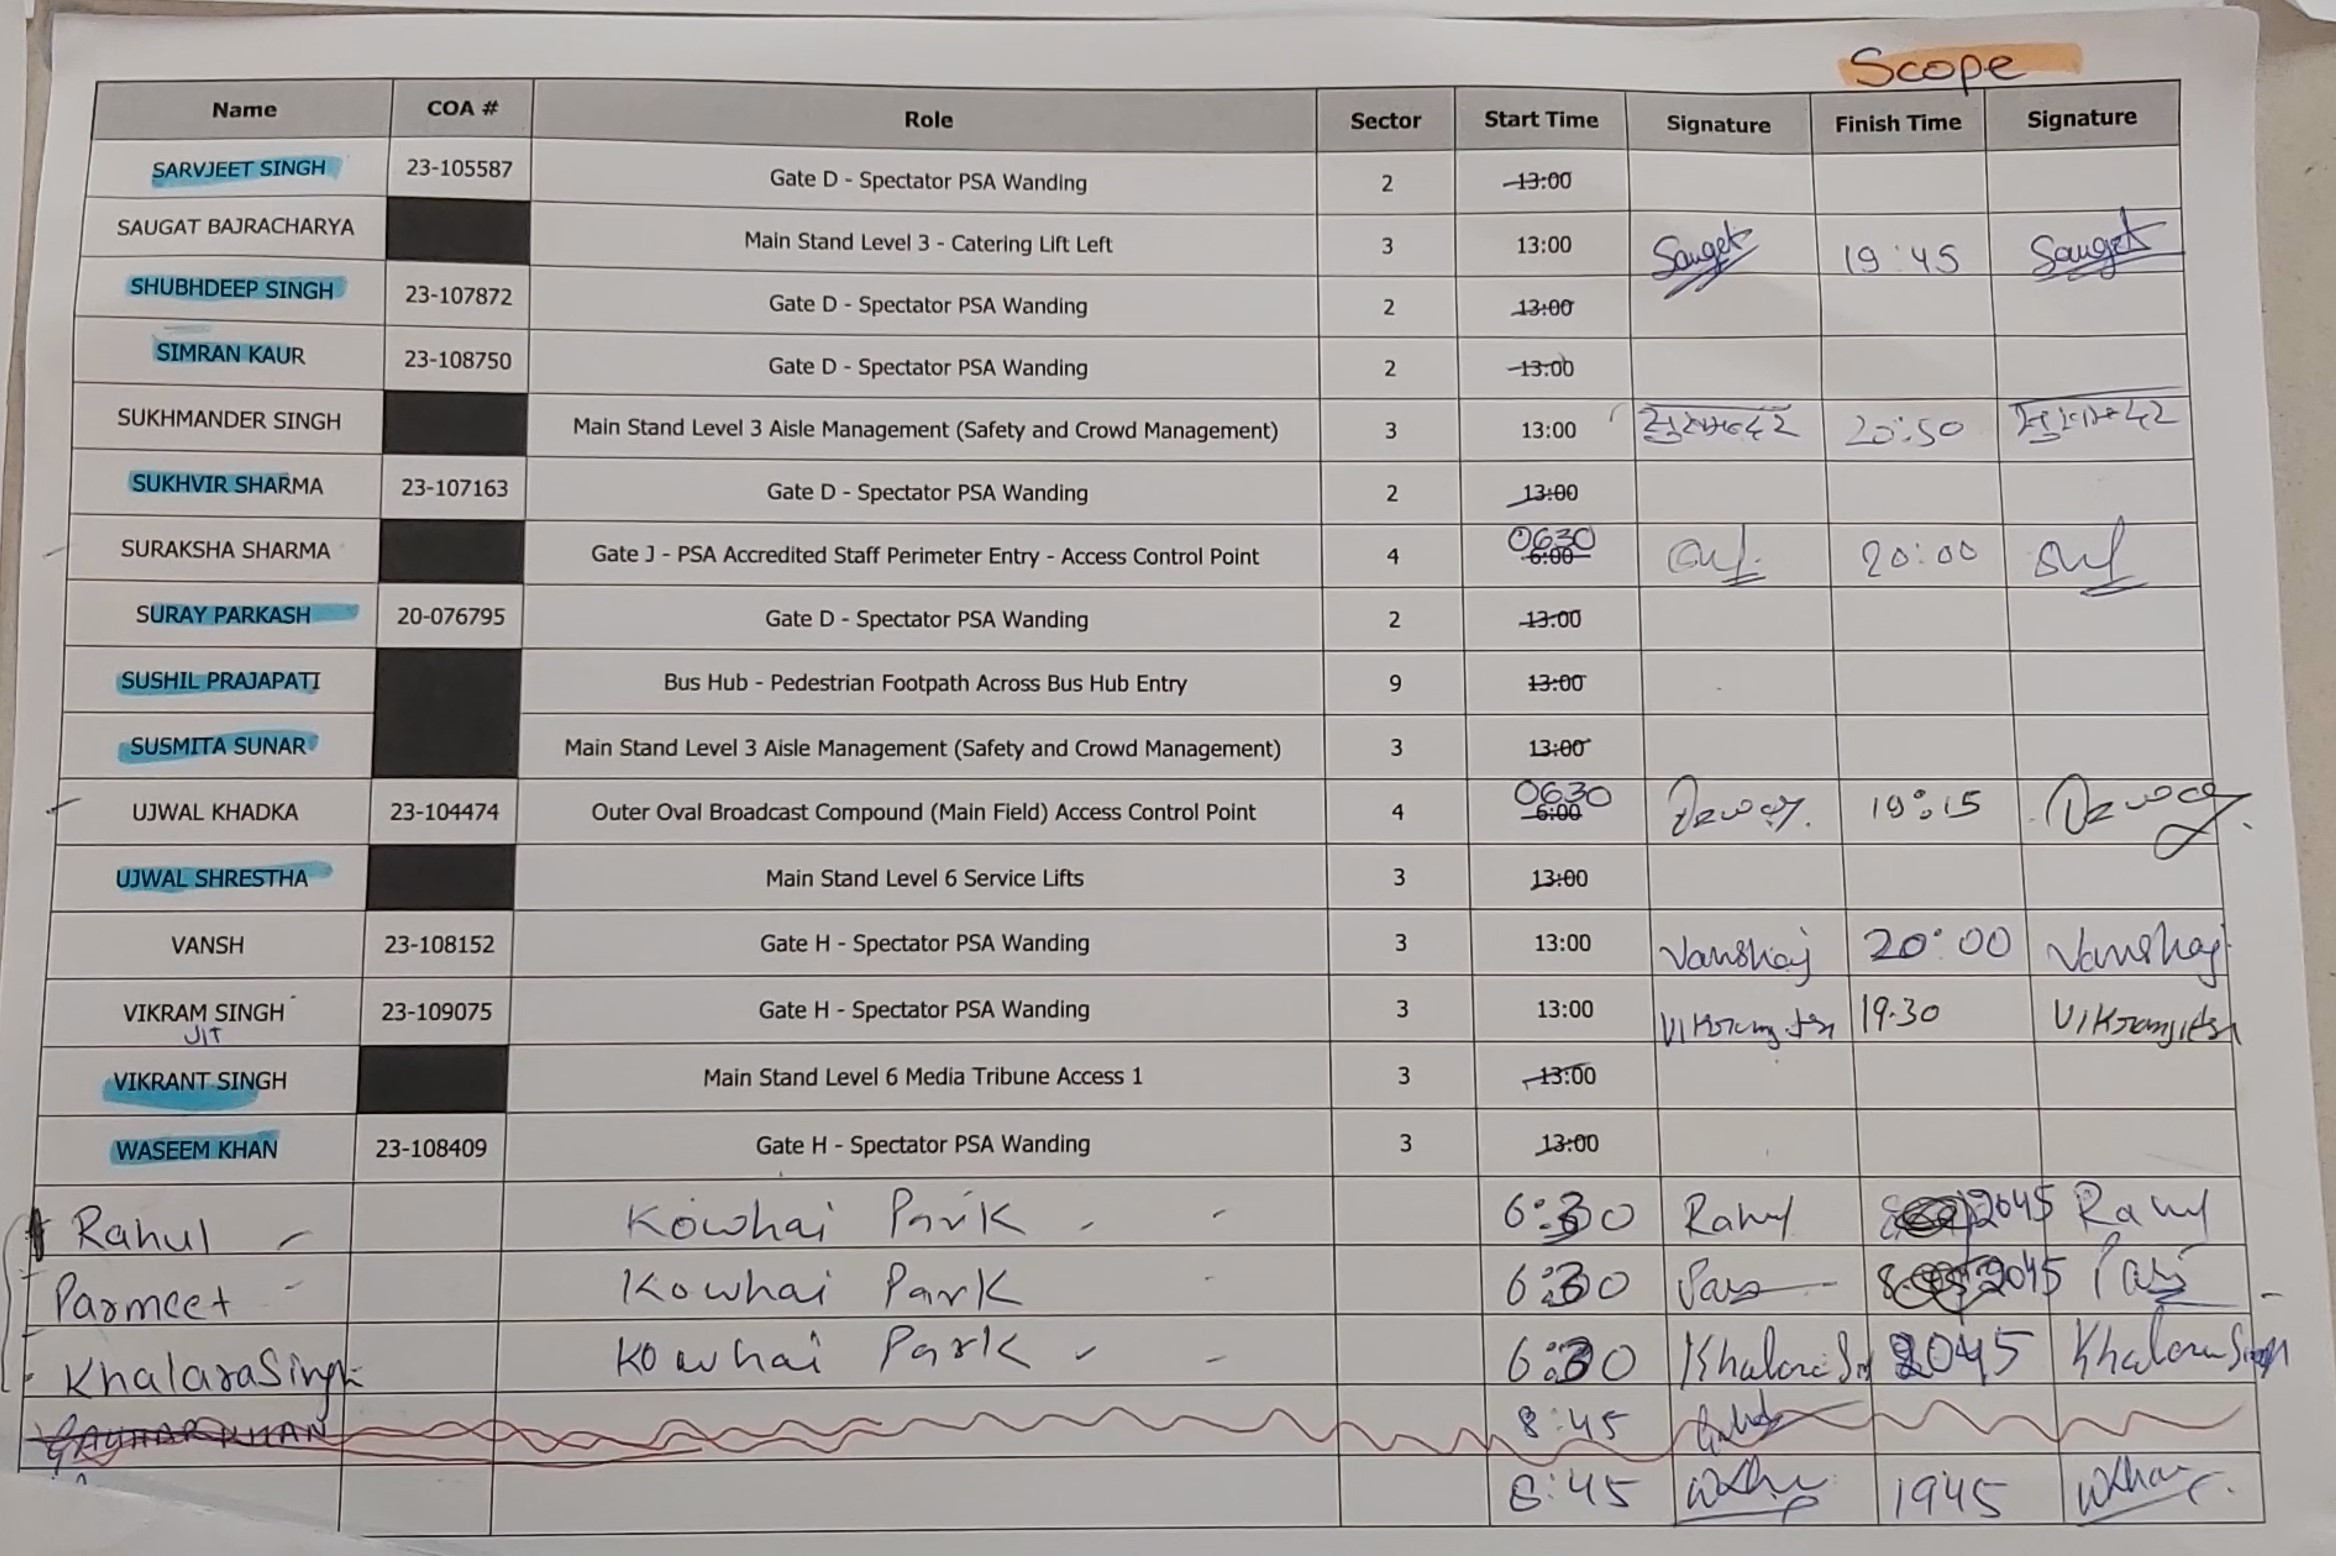 Scope
Name COA # Role Sector Start Time Signature Finish Time Signature
SARVJEET SINGH 23-105587 Gate D - Spectator PSA Wanding 2 13:00
SAUGAT BAJRACHARYA Main Stand Level 3 - Catering Lift Left 3 13:00 Sauget 19:45 Sauget
SHUBHDEEP SINGH 23-107872 Gate D - Spectator PSA Wanding 2 13:00
SIMRAN KAUR 23-108750 Gate D - Spectator PSA Wanding 2 13:00
SUKHMANDER SINGH Main Stand Level 3 Aisle Management (Safety and Crowd Management) 3 13:00 20:50
SUKHVIR SHARMA 23-107163 Gate D - Spectator PSA Wanding 2 13:00
SURAKSHA SHARMA Gate J - PSA Accredited Staff Perimeter Entry - Access Control Point 4 0630 6:00 20:00
SURAY PARKASH 20-076795 Gate D - Spectator PSA Wanding 2 13:00
SUSHIL PRAJAPATI Bus Hub - Pedestrian Footpath Across Bus Hub Entry 9 13:00
SUSMITA SUNAR Main Stand Level 3 Aisle Management (Safety and Crowd Management) 3 13:00
UJWAL KHADKA 23-104474 Outer Oval Broadcast Compound (Main Field) Access Control Point 4 0630 6:00 19:15
UJWAL SHRESTHA Main Stand Level 6 Service Lifts 3 13:00
VANSH 23-108152 Gate H - Spectator PSA Wanding 3 13:00 Vanshaj 20:00 Vanshaj
VIKRAM SINGH 23-109075 Gate H - Spectator PSA Wanding 3 13:00 19.30
JIT
VIKRANT SINGH Main Stand Level 6 Media Tribune Access 1 3 13:00
WASEEM KHAN 23-108409 Gate H - Spectator PSA Wanding 3 13:00
Rahul Kowhai Park 6:30 Rahul 2045 Rahul
Parmeet Kowhai Park 6:30 2045
KhalaraSingh Kowhai Park 6:30 2045
8:45
8:45 1945 WKhan